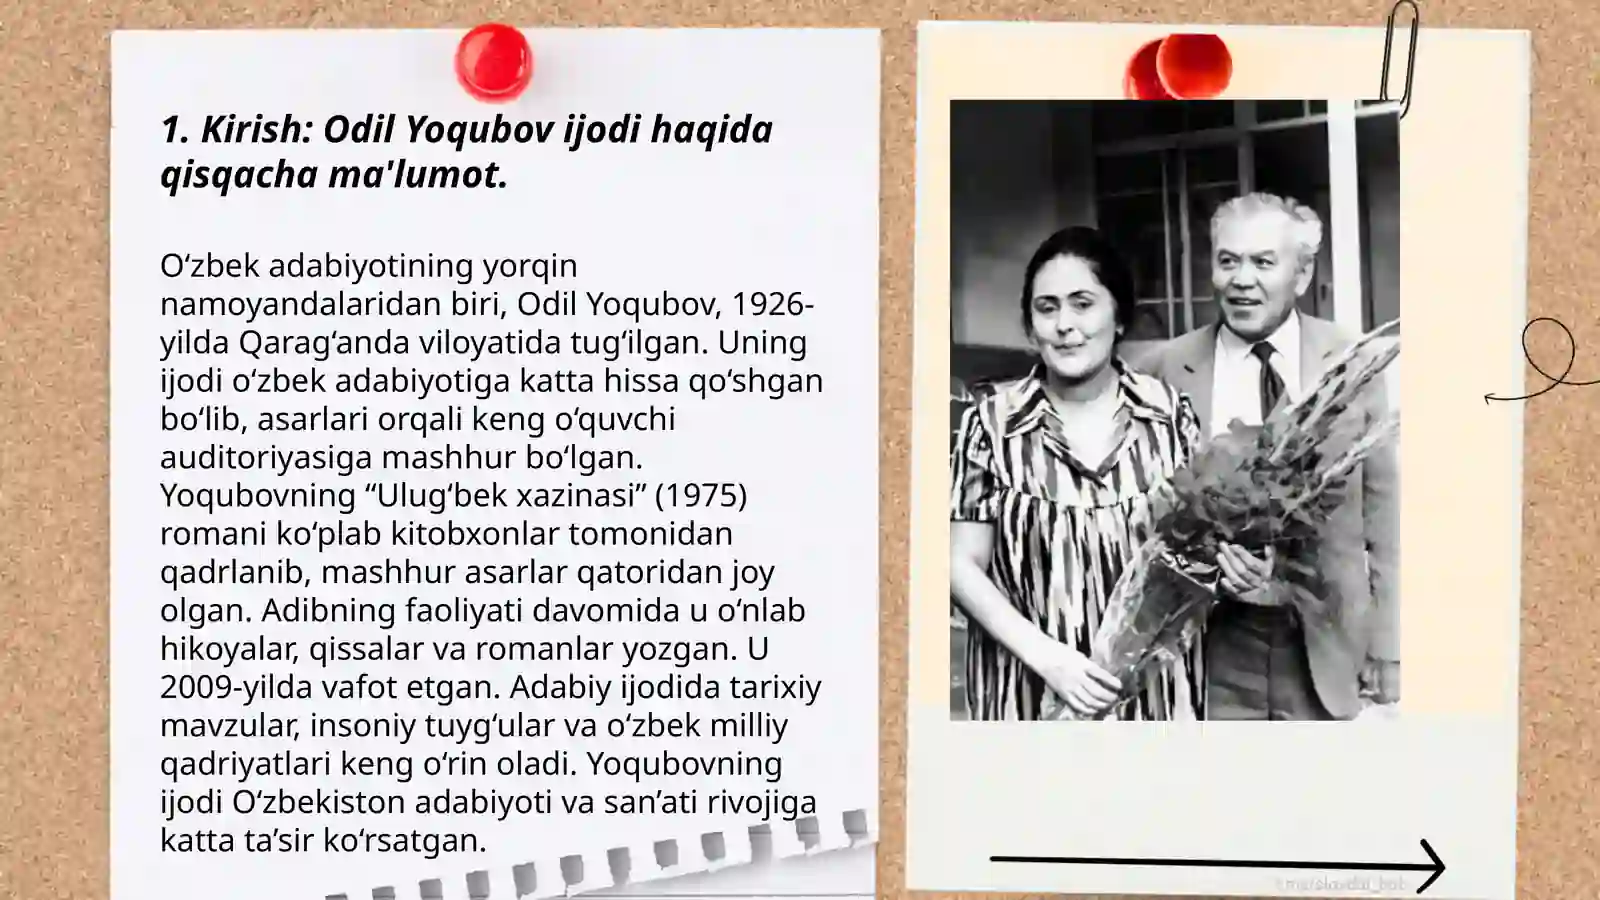 1. Kirish: Odil Yoqubov ijodi haqida
qisqacha ma'lumot.
O‘zbek adabiyotining yorqin
namoyandalaridan biri, Odil Yoqubov, 1926-
yilda Qarag‘anda viloyatida tug‘ilgan. Uning
ijodi o‘zbek adabiyotiga katta hissa qo‘shgan
bo‘lib, asarlari orqali keng o‘quvchi
auditoriyasiga mashhur bo‘lgan.
Yoqubovning “Ulug‘bek xazinasi” (1975)
romani ko‘plab kitobxonlar tomonidan
qadrlanib, mashhur asarlar qatoridan joy
olgan. Adibning faoliyati davomida u o‘nlab
hikoyalar, qissalar va romanlar yozgan. U
2009-yilda vafot etgan. Adabiy ijodida tarixiy
mavzular, insoniy tuyg‘ular va o‘zbek milliy
qadriyatlari keng o‘rin oladi. Yoqubovning
ijodi O‘zbekiston adabiyoti va san’ati rivojiga
katta ta’sir ko‘rsatgan.